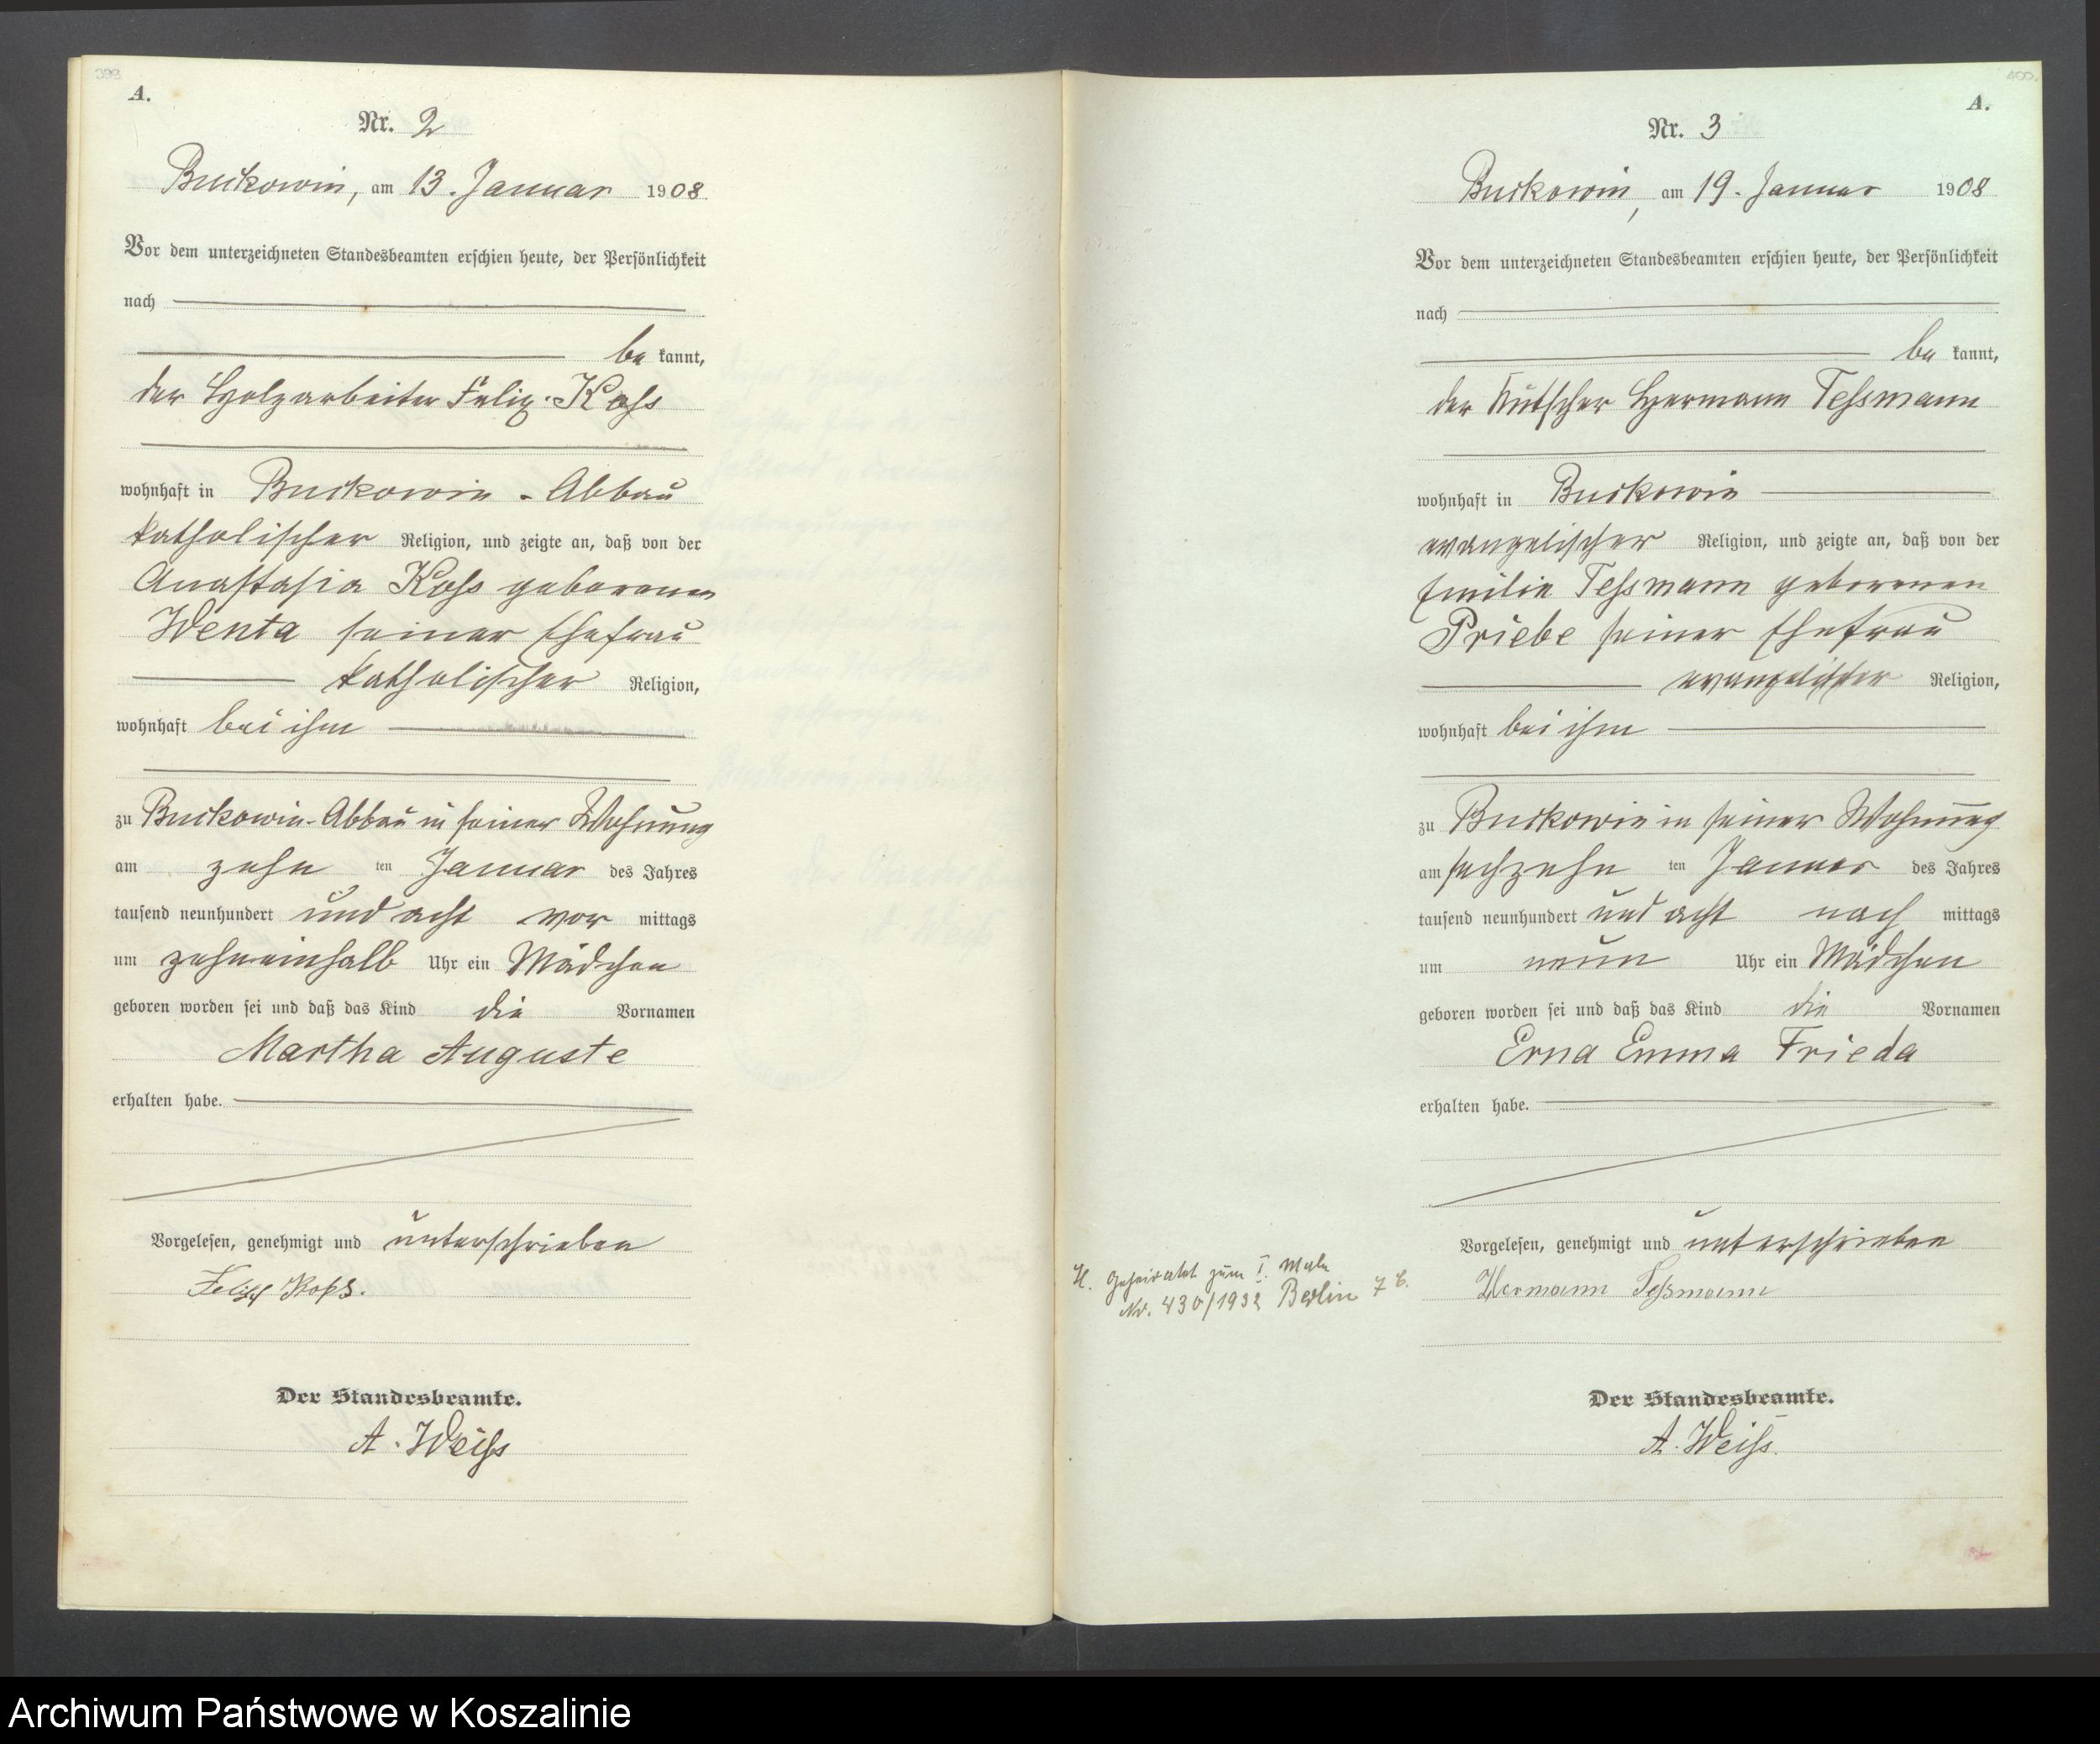 399
A.
Nr. 2
Buckowin, am 13. Januar 1908.
Vor dem unterzeichneten Standesbeamten erschien heute, der Persönlichkeit
nach
be kannt,
der Holzarbeiter Felix Koss
wohnhaft in Buckowin - Abbau
katholischer Religion, und zeigte an, daß von der
Anastasia Koss geborenen
Wenta seiner Ehefrau
katholischer Religion,
wohnhaft bei ihm
zu Buckowin-Abbau in seiner Wohnung
am zehn ten Januar des Jahres
tausend neunhundert und acht vor mittags
um zehneinhalb Uhr ein Mädchen
geboren worden sei und daß das Kind die Vornamen
Martha Auguste
erhalten habe.
Vorgelesen, genehmigt und unterschrieben
Felix Koss.
Der Standesbeamte.
A. Weiss
400.
A.
Nr. 3
Buckowin, am 19. Januar 1908
Vor dem unterzeichneten Standesbeamten erschien heute, der Persönlichkeit
nach
be kannt,
der Kutscher Hermann Tessmann
wohnhaft in Buckowin
evangelischer Religion, und zeigte an, daß von der
Emilie Tessmann geborenen
Priebe seiner Ehefrau
evangelischer Religion,
wohnhaft bei ihm
zu Buckowin in seiner Wohnung
am sechzehn ten Januar des Jahres
tausend neunhundert und acht nach mittags
um neun Uhr ein Mädchen
geboren worden sei und daß das Kind die Vornamen
Erna Emma Frieda
erhalten habe.
Vorgelesen, genehmigt und unterschrieben
Hermann Tessmann
H. Geheiratet zum I. Male
Nr. 430/1932 Berlin 7 b.
Der Standesbeamte.
A. Weiss.
Archiwum Państwowe w Koszalinie